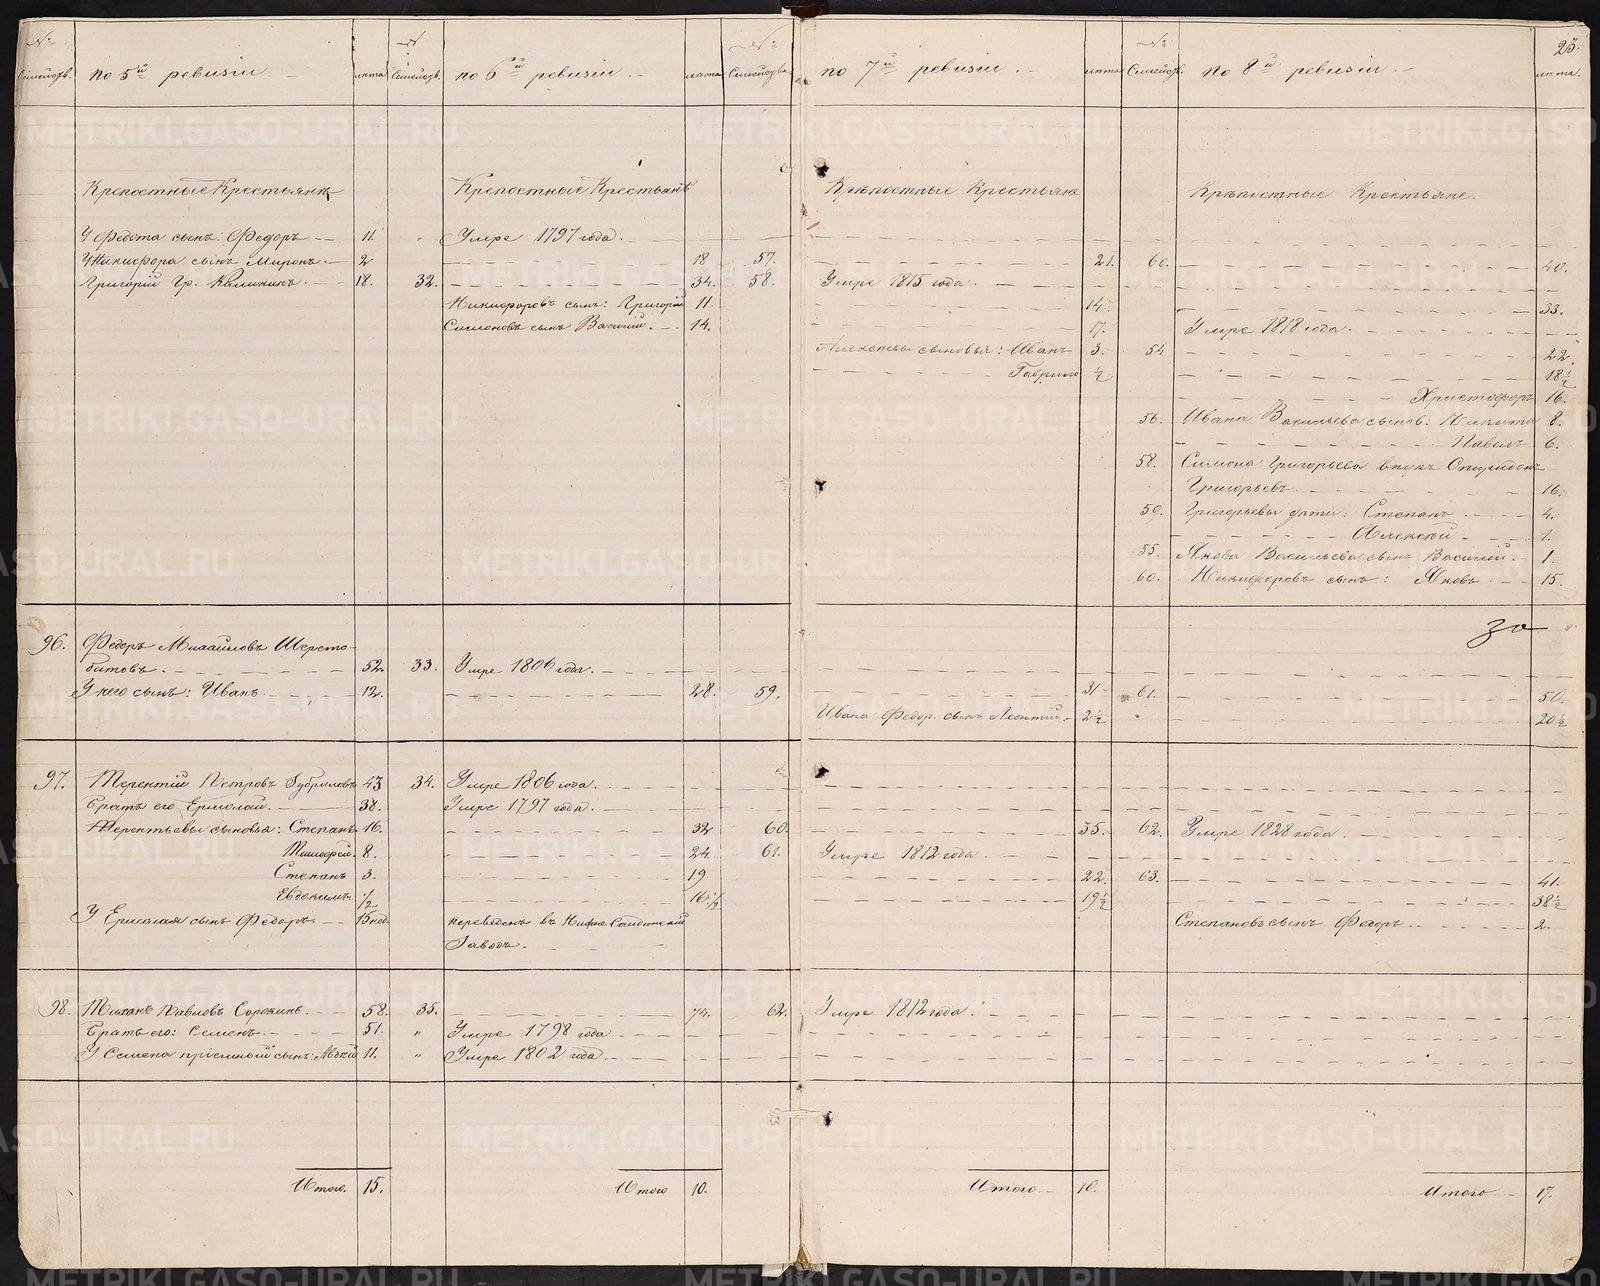 25.
№ Семейств. по 5й ревизии лѣта № Семейств. по 6й ревизии лѣта № Семейства по 7й ревизии лѣта № Семейств. по 8й ревизии лѣта.
Крепостные Крестьянѣ Крепостные Крестьянѣ Крѣпостные Крестьяне Крѣпостные Крестьяне.
У Федота сынъ: Федоръ 11. Умре 1797 года.
У Никифора сынъ Миронъ 2 18 57. 21. 60. 40.
Григорій Гр. Калининъ 18. 32. 34. 58. Умре 1815 года.
Никифоровъ сынъ: Григорій 11. 14. 33.
Симоновъ сынъ Василій. 14. 17. Умре 1818 года.
Алексеевы сыновья: Иванъ 3. 54 22.
Гаврило ½ 18½
Христофоръ 16.
56. Ивана Васильева сынов: Никита 8.
Павелъ 6.
58. Симона Григорьева внукъ Спиридонъ
Григорьевъ 16.
59. Григорьевы дѣти: Степанъ 4.
Алексѣй 1.
55. Якова Васильева сынъ Василій 1.
60. Никифоровъ сынъ: Яковъ 15.
96. Федоръ Михайловъ Шерсто-
битовъ. 52. 33. Умре 1806 года.
У него сынъ: Иванъ 12. 28. 59. 31 61. 50.
Ивана Федор. сынъ Леонтій 2½ 20½
97. Терентій Петровъ Губриловъ 43 34. Умре 1806 года.
Братъ его Ермолай. 38. Умре 1797 года.
Терентьевы сыновья: Степанъ 16. 32 60. 55. 62. Умре 1828 года.
Тимофей. 8. 24. 61. Умре 1812 года
Степанъ 3. 19 22. 63. 41.
Евдокимъ ½ 16½ 19½ 38½
У Ермолая сынъ Федоръ 15 нед. переведенъ въ Нижне Салдинскій Степановъ сынъ Федоръ 2.
Заводъ.
98. Тиханъ Павловъ Сорокинъ. 58. 35. 74. 62. Умре 1812 года.
Братъ его: Семенъ 51. " Умре 1798 года
У Семена пріемный сынъ: Авдѣй 11. " Умре 1802 года
Итого. 15. Итого 10. Итого 10. Итого 17.